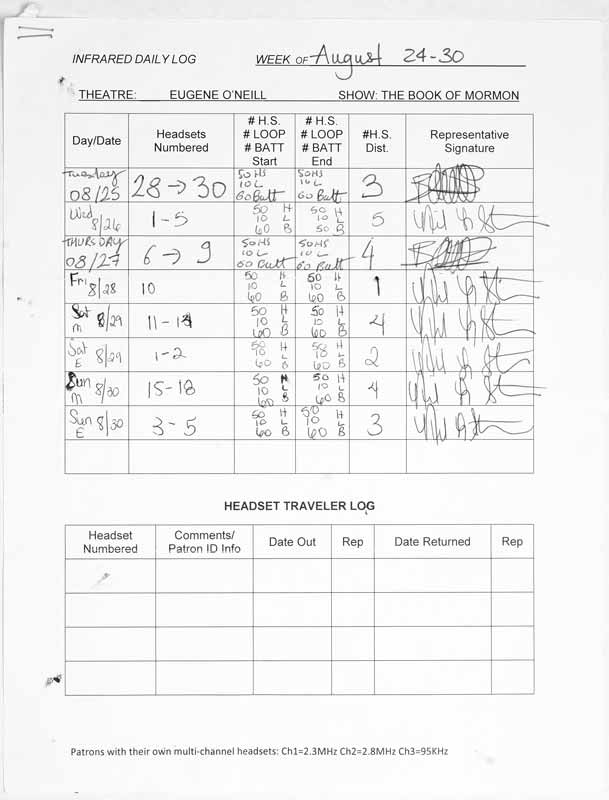 INFRARED DAILY LOG WEEK OF August 24-30
THEATRE: EUGENE O'NEILL SHOW: THE BOOK OF MORMON
Day/Date Headsets Numbered # H.S. # LOOP # BATT Start # H.S. # LOOP # BATT End #H.S. Dist. Representative Signature
Tuesday 08/25 28→30 50 HS 10 L 60 Batt 50 HS 10 L 60 Batt 3
Wed 8/26 1-5 50 H 10 L 60 B 50 H 10 L 50 B 5
THURSDAY 08/27 6→9 50 HS 10 L 60 Batt 50 HS 10 L 60 Batt 4
Fri 8/28 10 50 H 10 L 60 B 50 H 10 L 60 B 1
Sat M 8/29 11-14 50 H 10 L 60 B 50 H 10 L 60 B 4
Sat E 8/29 1-2 50 H 10 L 60 B 50 H 10 L 60 B 2
Sun M 8/30 15-18 50 H 10 L 60 B 50 H 10 L 60 B 4
Sun E 8/30 3-5 50 H 10 L 60 B 50 H 10 L 60 B 3
HEADSET TRAVELER LOG
Headset Numbered Comments/ Patron ID Info Date Out Rep Date Returned Rep
Patrons with their own multi-channel headsets: Ch1=2.3MHz Ch2=2.8MHz Ch3=95KHz